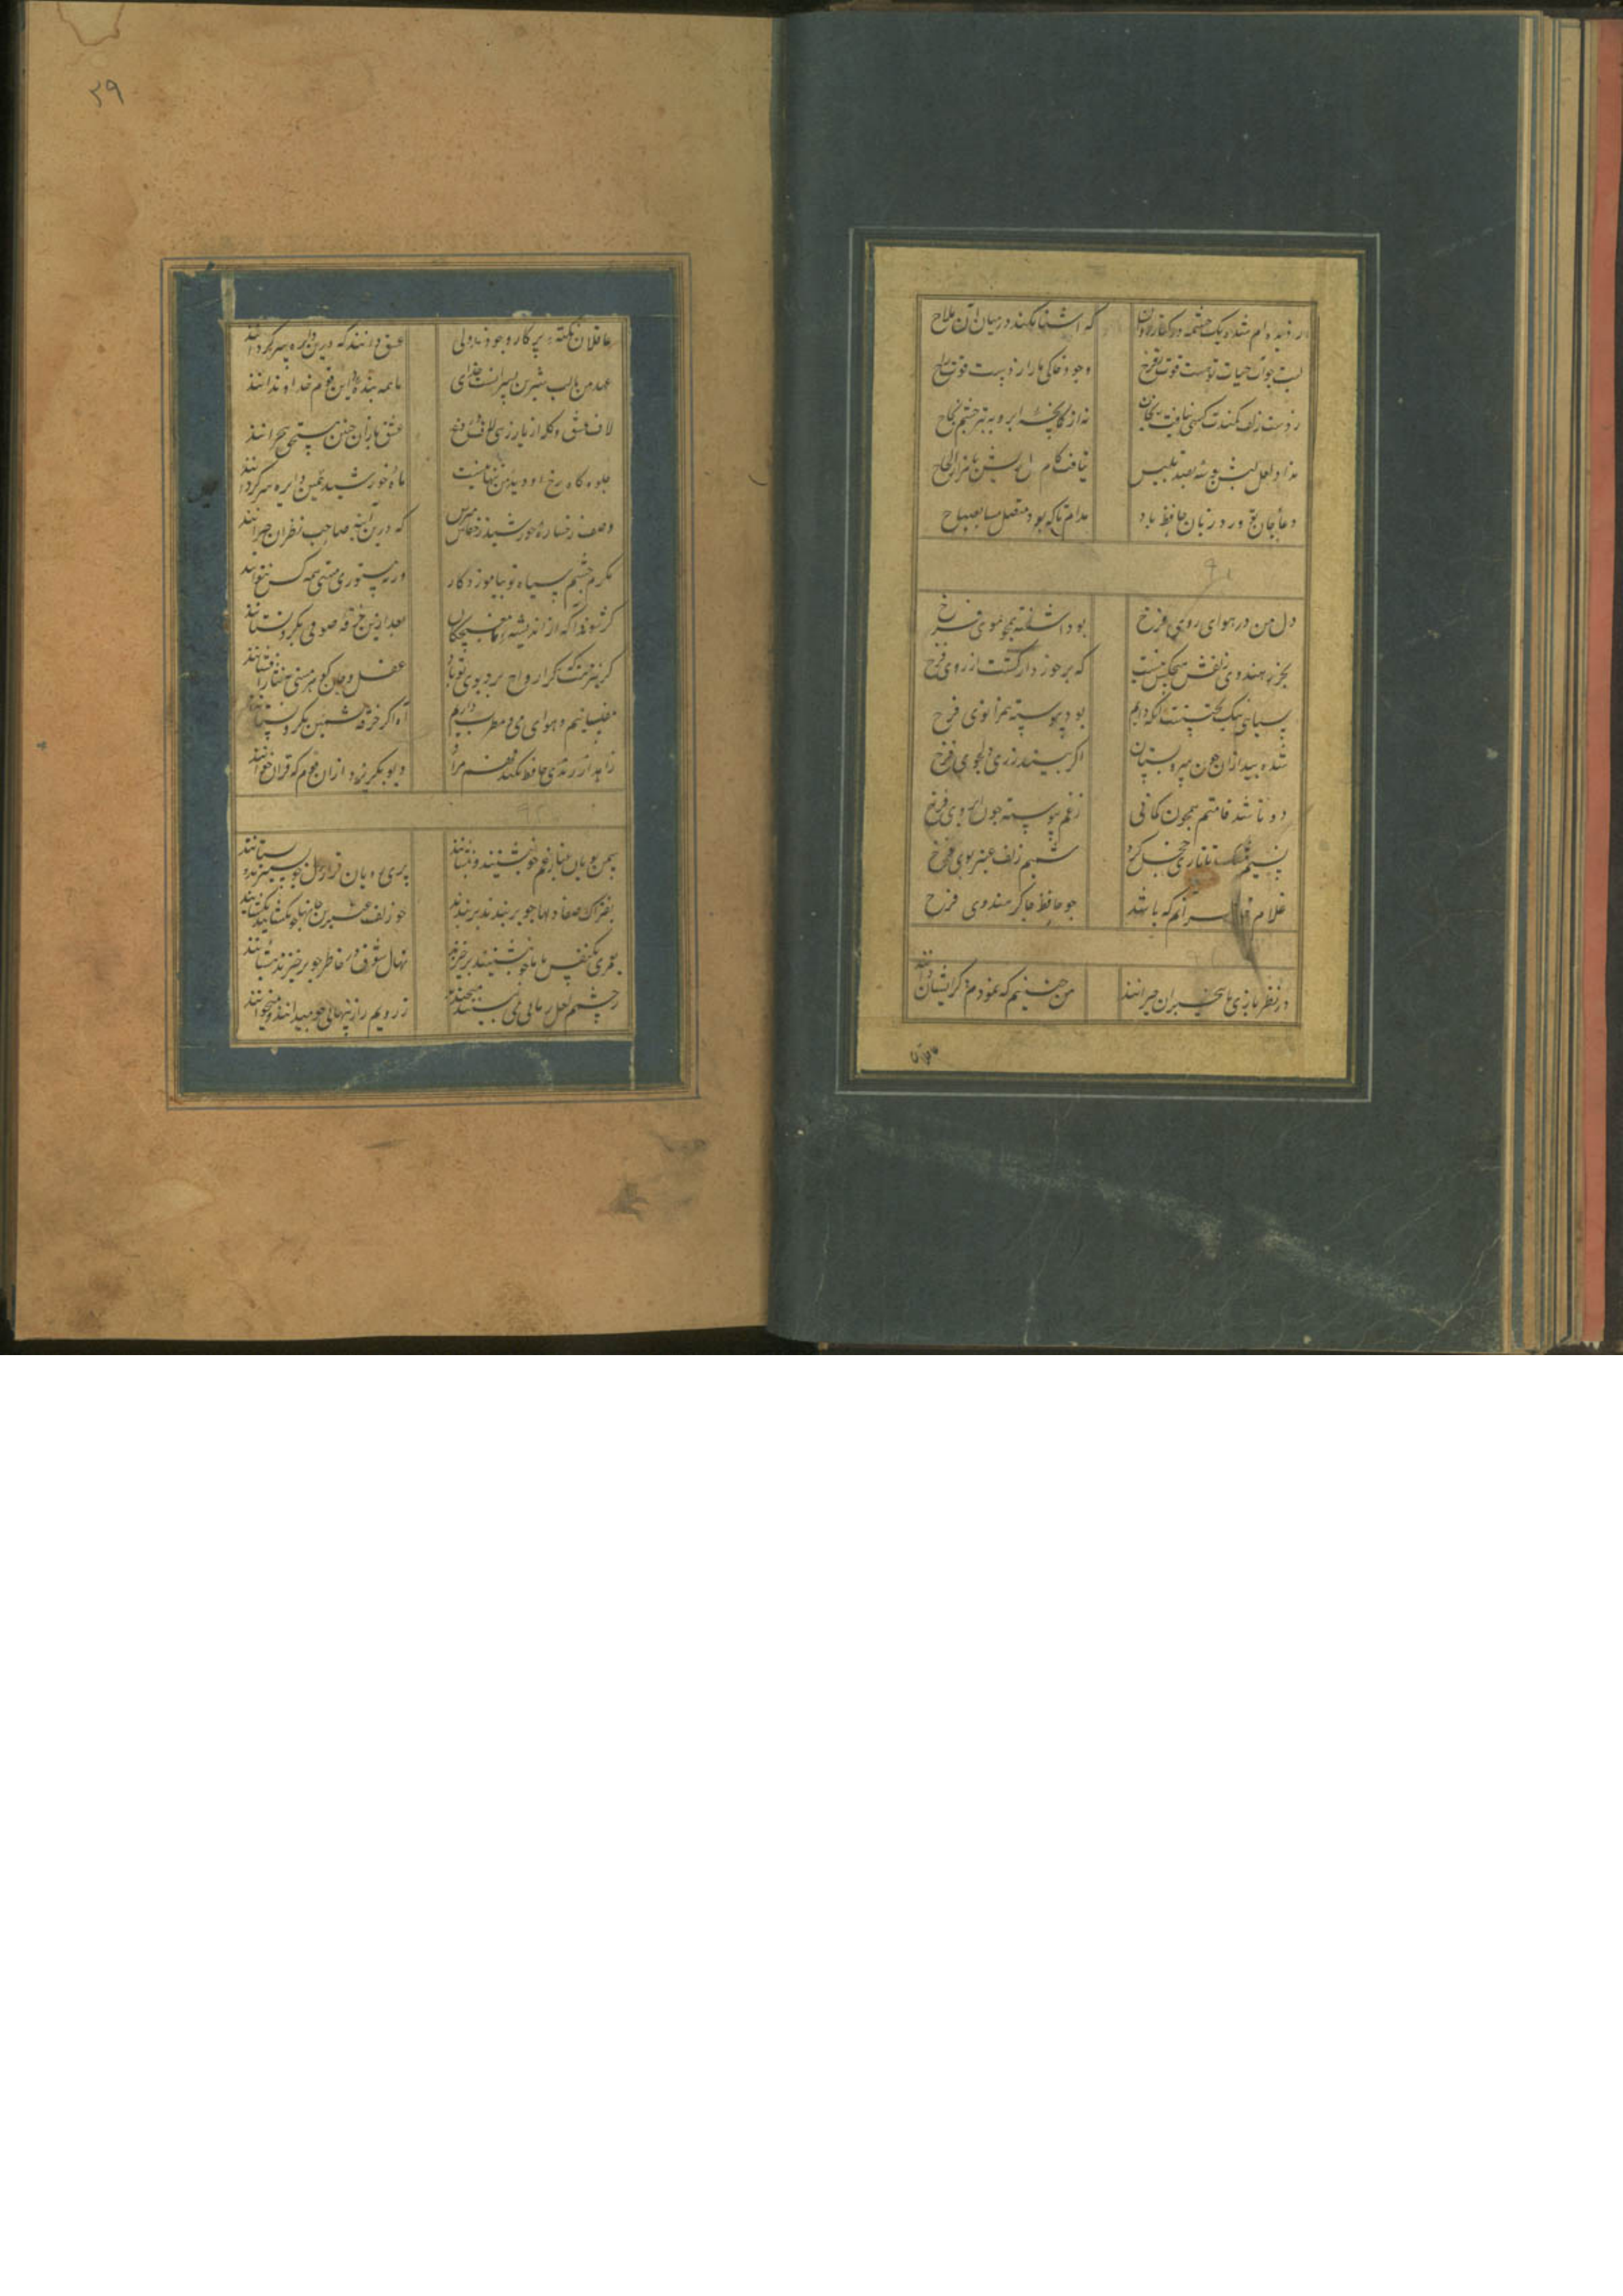 ز دیده‌ام شده یک چشمه در کنار روان که آشنا نکند در میان آن ملاح
لب چو آب حیات تو هست قوت روح وجود خاکی ما را از وست قوت راح
ز دست زلف کمندت کسی نیافت نجات نه از کمانچه ابرو و تیر چشم نجاح
نداد لعل لبش بوسه بصد تلبیس نیافت کام دل من ازو بصد الحاح
دعای جان تو ورد زبان حافظ باد مدام تا که بود متصل مسا بصباح
دل من در هوای روی فرخ بود آشفته همچو موی فرخ
بجز هندوی زلفش هیچکس نیست که برخوردار گشت از روی فرخ
سیاهی نیک بختست آنکه دایم بود پیوسته همزانوی فرخ
شده بید لرزان چون سرو بستان اگر بیند قد دلجوی فرخ
دو تا شد قامتم همچون کمانی ز غم پیوسته چون ابروی فرخ
نسیم مشک تاتاری خجل کرد شمیم زلف عنبر بوی فرخ
غلام آنم که باشد چو حافظ چاکر هندوی فرخ
در نظر بازی ما بیخبران حیرانند من چنینم که نمودم دگر ایشان دانند
عاقلان
۳۹
عاقلان نکته پرکار وجودند ولی عشق داند که درین دایره سرگردانند
عهد من با لب شیرین پسران بست خدای ما همه بنده و این قوم خداوندانند
لاف عشق و گله از یار زهی لاف دروغ عشق بازان چنین مستحق هجرانند
جلوه گاه رخ او دیده من تنها نیست ماه و خورشید همین دایره میگردانند
وصف رخساره خورشید ز خفاش مپرس که درین آینه صاحب نظران حیرانند
مگرم چشم سیاه تو بیاموزد کار ورنه مستوری و مستی همه کس نتوانند
گر شوند آگه از اندیشه ما مغبچگان بعد ازین خرقه صوفی بگرو نستانند
گر بنزهتگه ارواح برد بوی تو باد عقل و جان گوهر هستی بنثار افشانند
مفلسانیم و هوای می و مطرب داریم آه اگر خرقه پشمین بگرو نستانند
زاهد ار رندی حافظ نکند فهم چه شد دیو بگریزد از آن قوم که قرآن خوانند
سمن بویان غبار غم چو بنشینند بنشانند پری رویان قرار از دل چو بستیزند بستانند
بفتراک جفا دلها چو بربندند بربندند ز زلف عنبرین جانها چو بگشایند بفشانند
بعمری یک نفس با ما چو بنشینند برخیزند نهال شوق در خاطر چو برخیزند بنشانند
ز چشمم لعل رمانی چو می بینند میخندند ز رویم راز پنهانی چو میدانند میخوانند